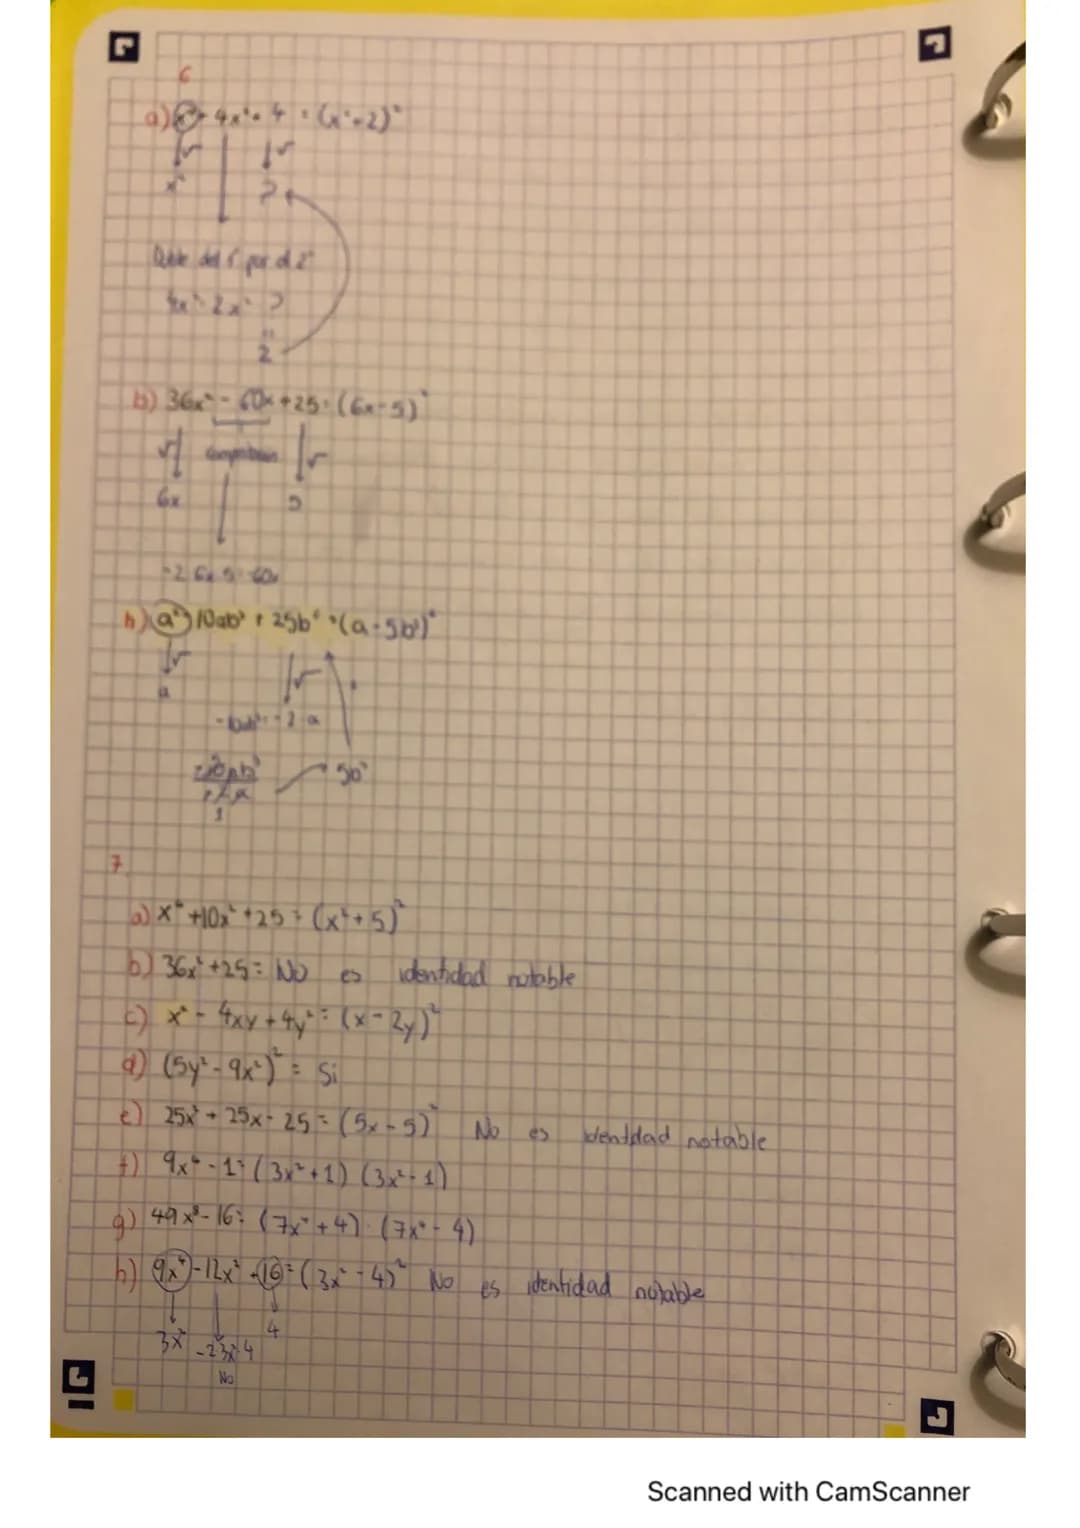 6
a) x⁴ + 4x² + 4 = (x² + 2)²
√ √
x² 2
Doble del 1º por el 2º
4x² = 2x² · 2
2
b) 36x² - 60x + 25 = (6x - 5)²
√ comprobación √
6x 5
-2 · 6x · 5 = 60x
h) a² - 10ab³ + 25b⁶ = (a - 5b³)²
√ √
a
-10ab³ = -2 · a
5b³
1
7
a) x⁴ + 10x² + 25 = (x² + 5)²
b) 36x² + 25 = No es identidad notable
c) x² - 4xy + 4y² = (x - 2y)²
d) (5y² - 9x²)² = Si
e) 25x² + 25x - 25 = (5x - 5)² No es identidad notable
f) 9x⁴ - 1 = (3x² + 1) (3x² - 1)
g) 49x⁸ - 16 = (7x⁴ + 4) · (7x⁴ - 4)
h) 9x⁴ - 12x² - 16 = (3x² - 4)² No es identidad notable
3x² -2·3x²·4 4
No
Scanned with CamScanner